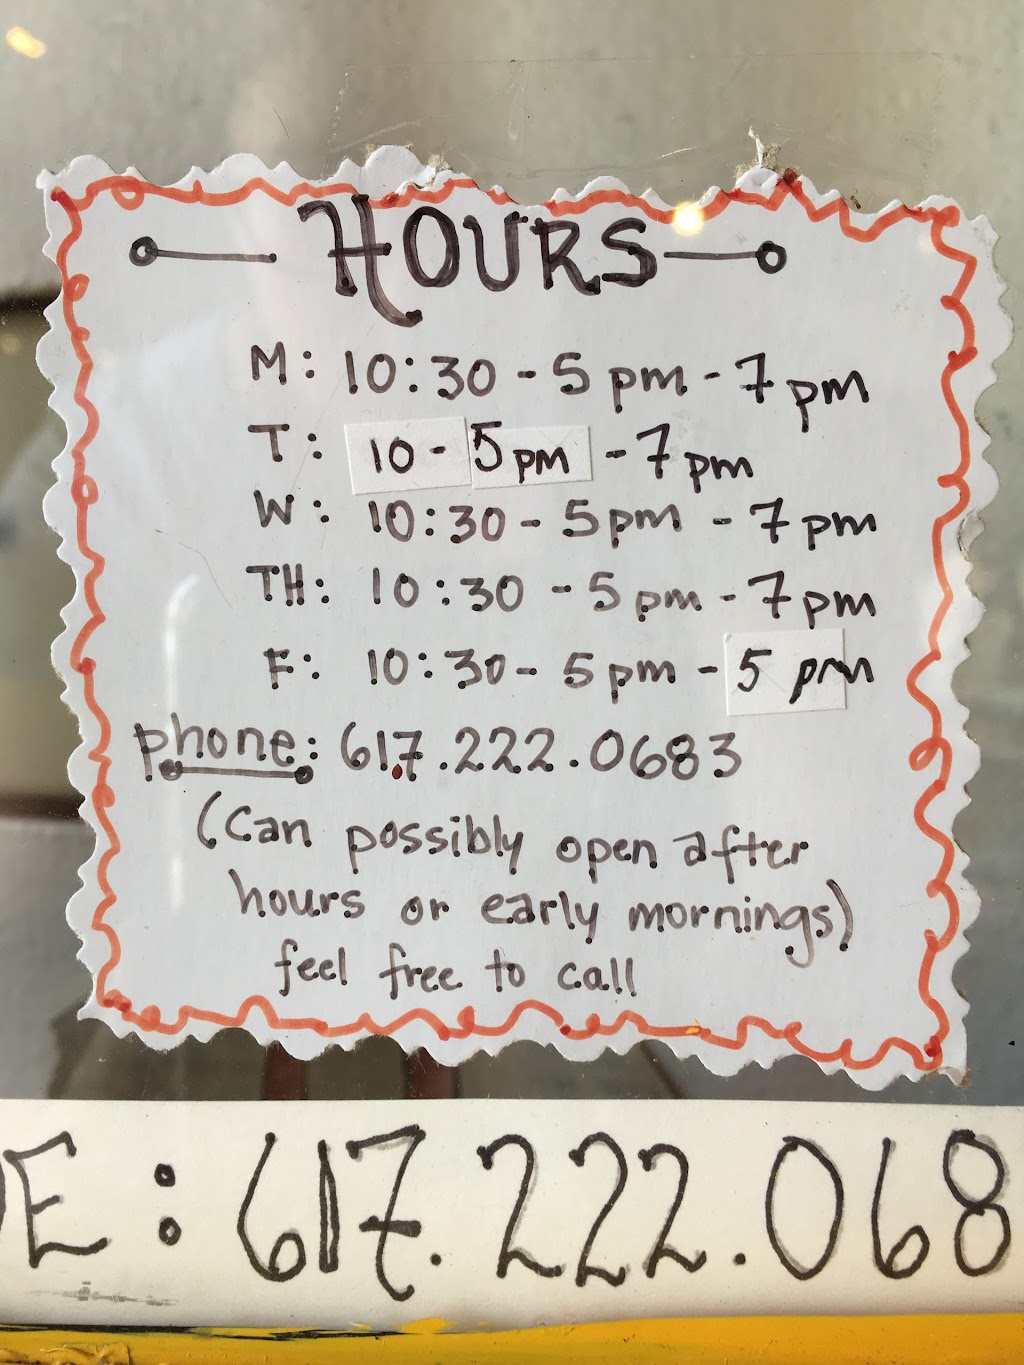 HOURS
M: 10:30 - 5 pm - 7 pm
T: 10 - 5 pm - 7 pm
W: 10:30 - 5 pm - 7 pm
TH: 10:30 - 5 pm - 7 pm
F: 10:30 - 5 pm - 5 pm
phone: 617.222.0683
(Can possibly open after
hours or early mornings)
feel free to call
E: 617.222.068